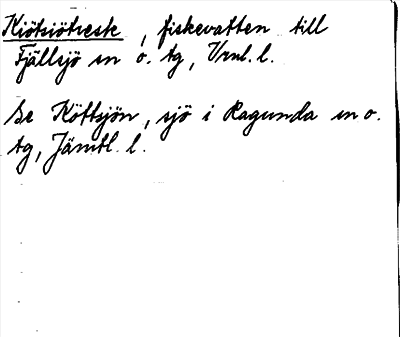 Kiötsiötresk, fiskevatten till
Fjällsjö sn o. tg, Vrnl. l.
Se Köttsjön, sjö i Ragunda sn o.
tg, Jämtl. l.